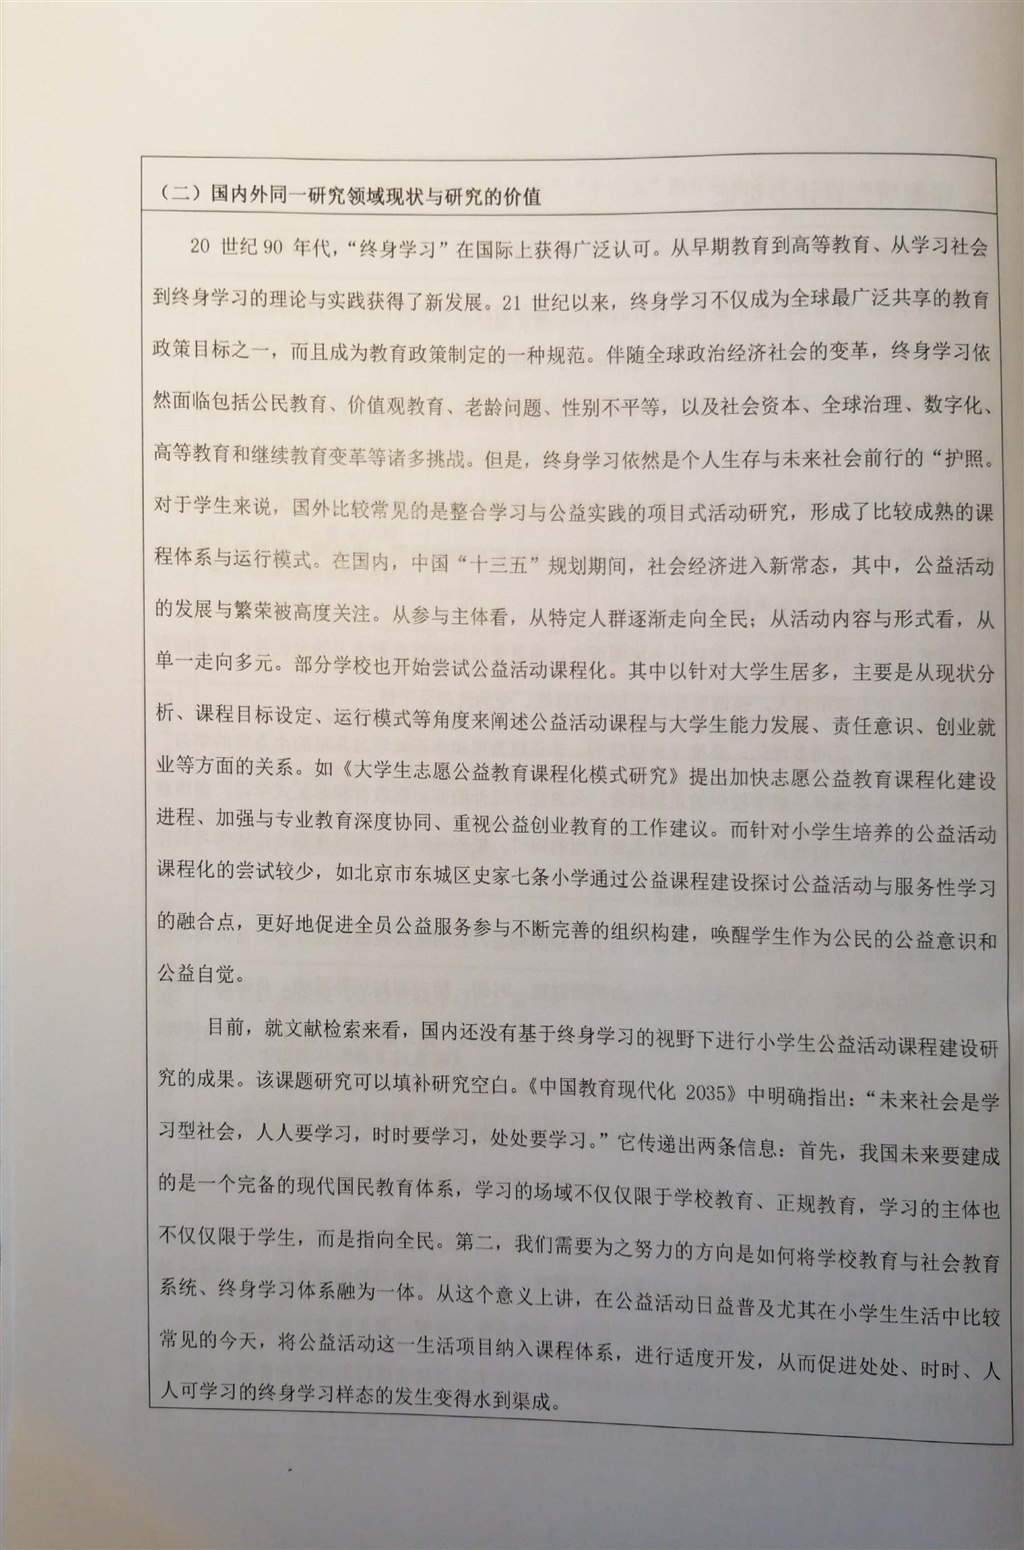 （二）国内外同一研究领域现状与研究的价值
20 世纪 90 年代，“终身学习”在国际上获得广泛认可。从早期教育到高等教育、从学习社会
到终身学习的理论与实践获得了新发展。21 世纪以来，终身学习不仅成为全球最广泛共享的教育
政策目标之一，而且成为教育政策制定的一种规范。伴随全球政治经济社会的变革，终身学习依
然面临包括公民教育、价值观教育、老龄问题、性别不平等，以及社会资本、全球治理、数字化、
高等教育和继续教育变革等诸多挑战。但是，终身学习依然是个人生存与未来社会前行的“护照。
对于学生来说，国外比较常见的是整合学习与公益实践的项目式活动研究，形成了比较成熟的课
程体系与运行模式。在国内，中国“十三五”规划期间，社会经济进入新常态，其中，公益活动
的发展与繁荣被高度关注。从参与主体看，从特定人群逐渐走向全民；从活动内容与形式看，从
单一走向多元。部分学校也开始尝试公益活动课程化。其中以针对大学生居多，主要是从现状分
析、课程目标设定、运行模式等角度来阐述公益活动课程与大学生能力发展、责任意识、创业就
业等方面的关系。如《大学生志愿公益教育课程化模式研究》提出加快志愿公益教育课程化建设
进程、加强与专业教育深度协同、重视公益创业教育的工作建议。而针对小学生培养的公益活动
课程化的尝试较少，如北京市东城区史家七条小学通过公益课程建设探讨公益活动与服务性学习
的融合点，更好地促进全员公益服务参与不断完善的组织构建，唤醒学生作为公民的公益意识和
公益自觉。
目前，就文献检索来看，国内还没有基于终身学习的视野下进行小学生公益活动课程建设研
究的成果。该课题研究可以填补研究空白。《中国教育现代化 2035》中明确指出：“未来社会是学
习型社会，人人要学习，时时要学习，处处要学习。”它传递出两条信息：首先，我国未来要建成
的是一个完备的现代国民教育体系，学习的场域不仅仅限于学校教育、正规教育，学习的主体也
不仅仅限于学生，而是指向全民。第二，我们需要为之努力的方向是如何将学校教育与社会教育
系统、终身学习体系融为一体。从这个意义上讲，在公益活动日益普及尤其在小学生生活中比较
常见的今天，将公益活动这一生活项目纳入课程体系，进行适度开发，从而促进处处、时时、人
人可学习的终身学习样态的发生变得水到渠成。